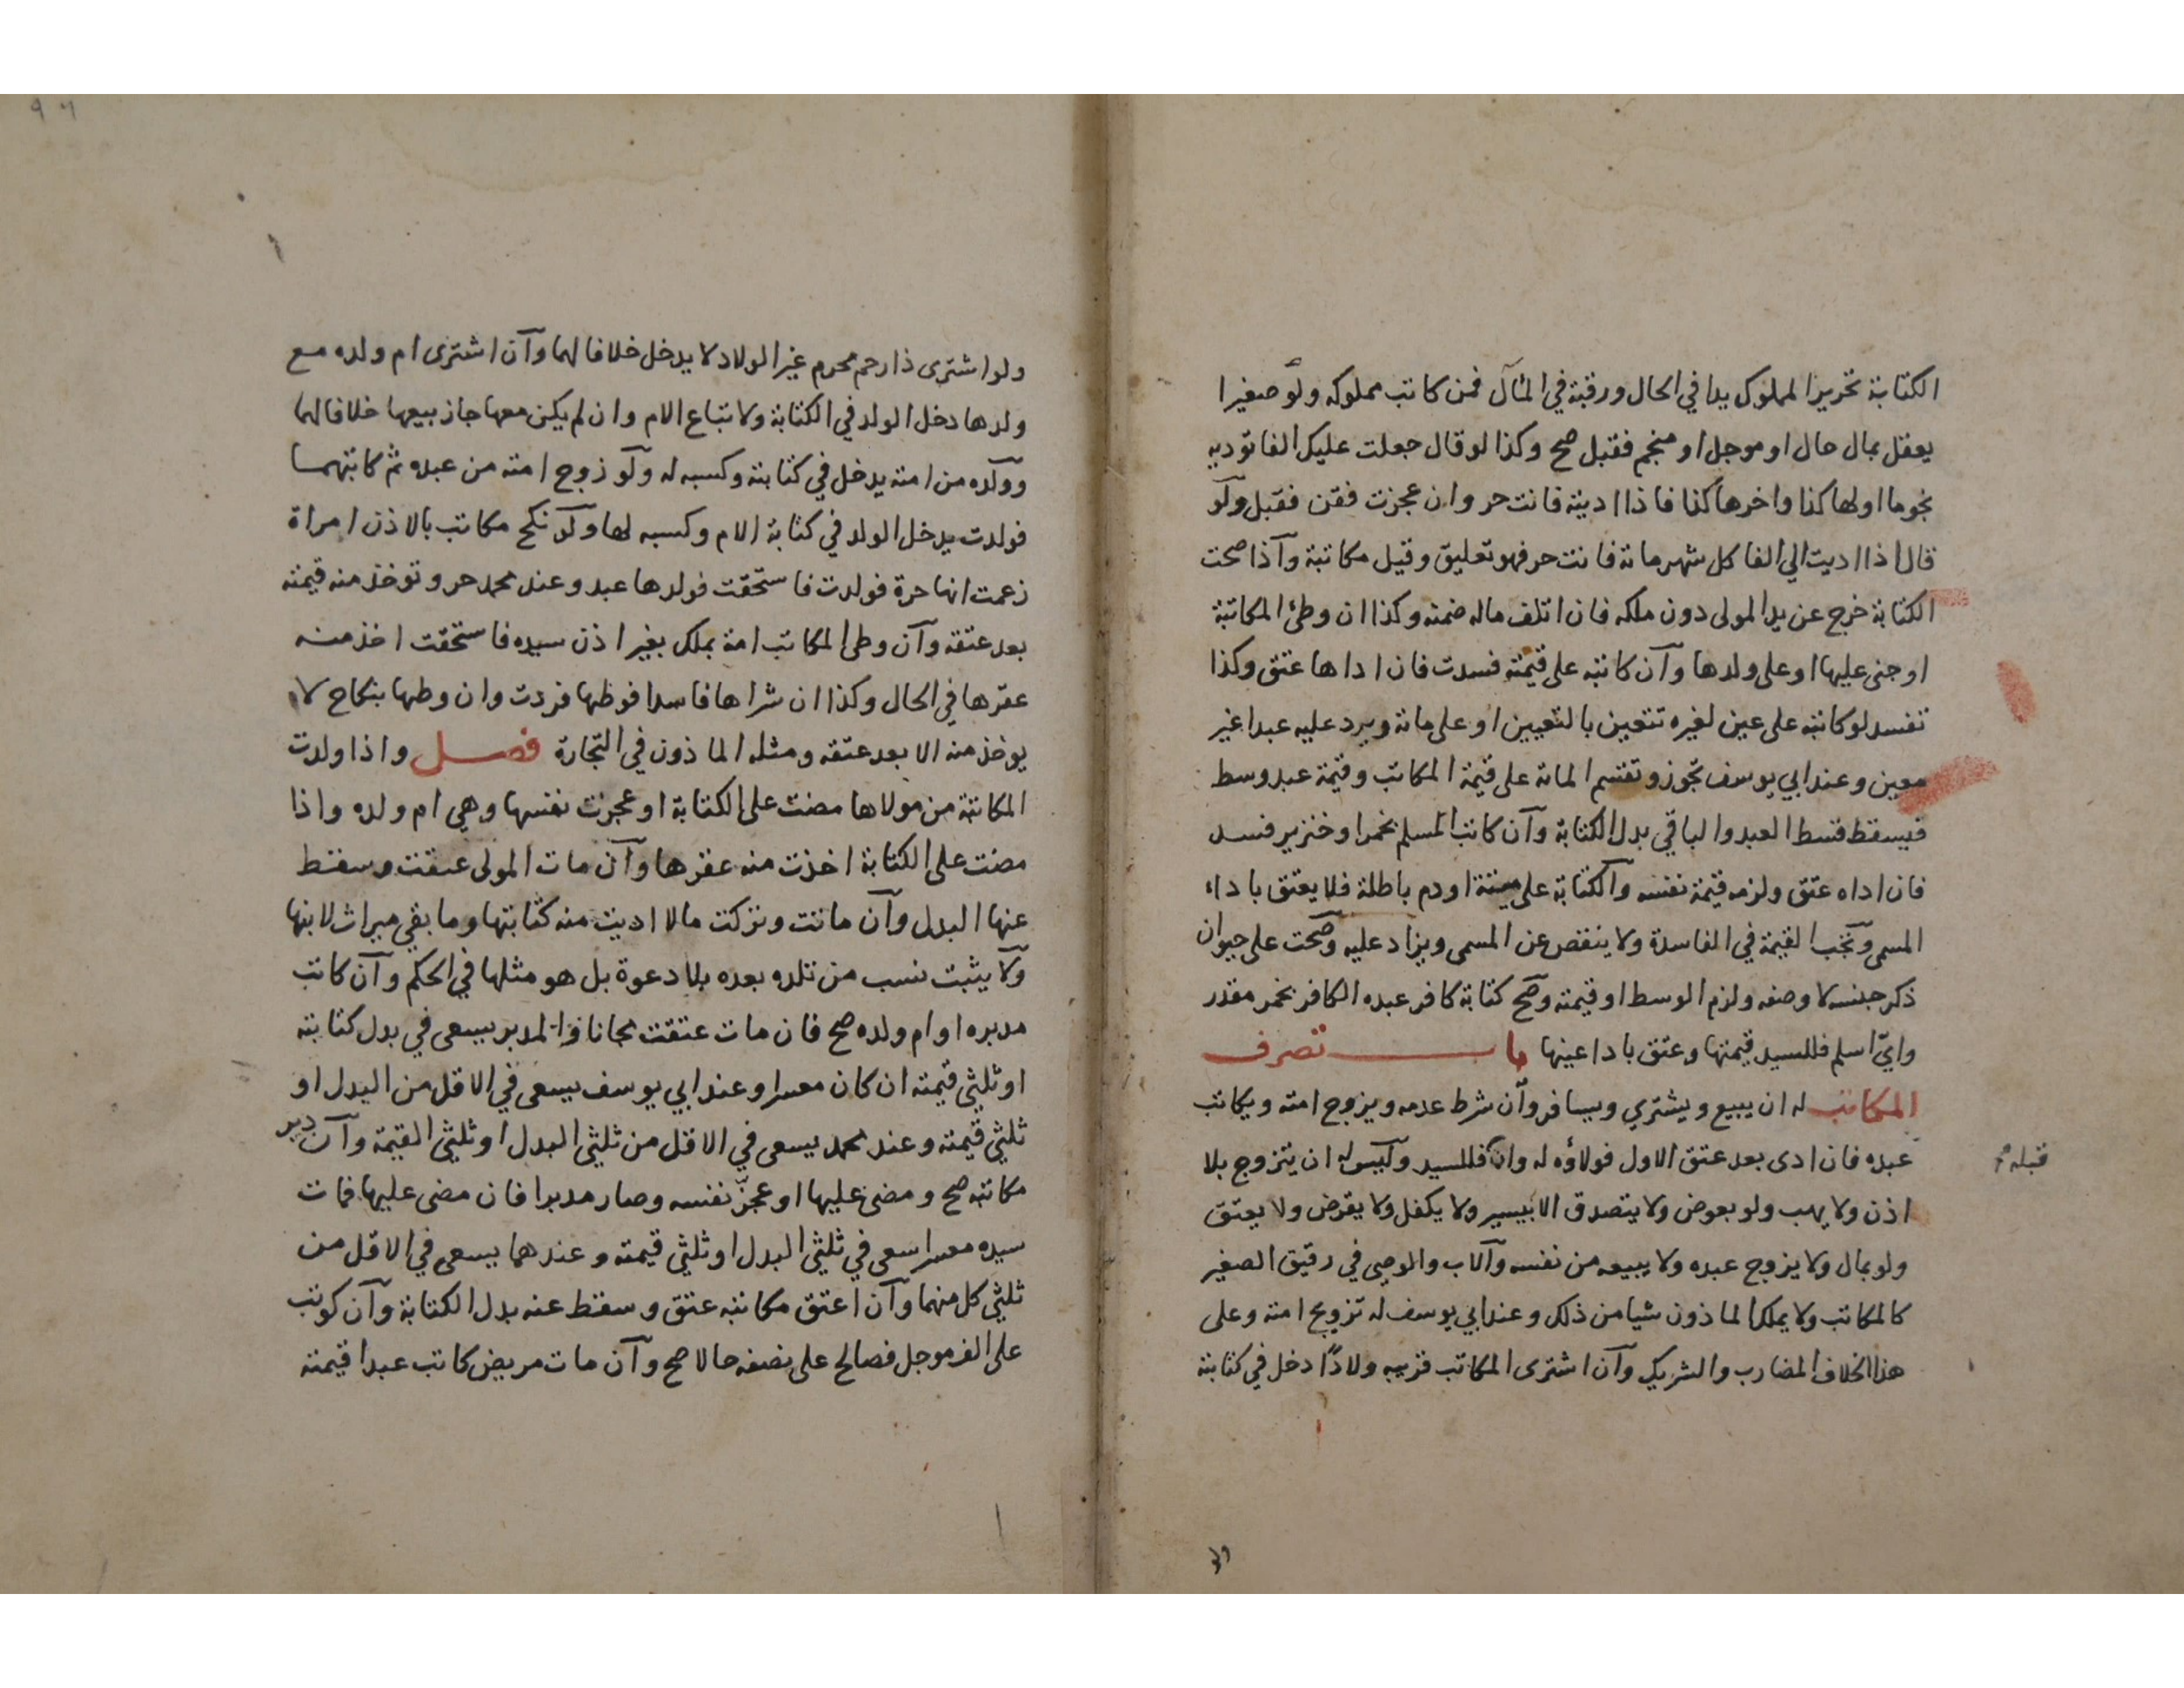 الكتابة تحرير المملوك يدا في الحال ورقبة في المآل فمن كاتب مملوكه ولو صغيرا
يعقل بمال حال او موجل او منجم فقبل صح وكذا لو قال جعلت عليك الفا توديه
نجوما اولها كذا واخرها كذا فاذا اديته فانت حر وان عجزت فقن فقبل ولو
قال اذا اديت الي الفا كل شهر مائة فانت حر فهو تعليق وقيل مكاتبة واذا صحت
الكتابة خرج عن يد المولى دون ملكه فان اتلف ماله ضمنه وكذا ان وطئ المكاتبة
او جنى عليها او على ولدها وان كاتبه على قيمته فسدت فان اداها عتق وكذا
تفسد لو كاتبه على عين لغيره تتعين بالتعيين او على مائة ويرد عليه عبدا غير
معين وعند ابي يوسف تجوز وتقسم المائة على قيمة المكاتب وقيمة عبد وسط
فيسقط قسط العبد والباقي بدل الكتابة وان كاتب المسلم بخمر او خنزير فسد
فان اداه عتق ولزمه قيمة نفسه والكتابة على ميتة او دم باطلة فلا يعتق باداء
المسمى وتجب القيمة في الفاسدة ولا ينقص عن المسمى ويزاد عليه وصحت على حيوان
ذكر جنسه لا وصفه ولزم الوسط او قيمته وصح كتابة كافر عبده الكافر بخمر مقدر
واي اسلم فللسيد قيمتها وعتق باداء عينها باب تصرف
المكاتب له ان يبيع ويشتري ويسافر وان شرط عدمه ويزوج امته ويكاتب
عبده فان ادى بعد عتق الاول فولاؤه له وان فللسيد وليس له ان يتزوج بلا
قبله
اذن ولا يهب ولو بعوض ولا يتصدق الا بيسير ولا يكفل ولا يقرض ولا يعتق
ولو بمال ولا يزوج عبده ولا يبيعه من نفسه والاب والوصي في رقيق الصغير
كالمكاتب ولا يملك الماذون شيا من ذلك وعند ابي يوسف له تزويج امته وعلى
هذا الخلاف المضارب والشريك وان اشترى المكاتب قريبه ولادا دخل في كتابته
ولو
ولو اشترى ذا رحم محرم غير الولاد لا يدخل خلافا لهما وان اشترى ام ولده مع
ولدها دخل الولد في الكتابة ولا تباع الام وان لم يكن معها جاز بيعها خلافا لهما
وولده من امته يدخل في كتابته وكسبه له ولو زوج امته من عبده ثم كاتبهما
فولدت يدخل الولد في كتابة الام وكسبه لها ولو نكح مكاتب بالاذن امراة
زعمت انها حرة فولدت فاستحقت فولدها عبد وعند محمد حر وتوخذ منه قيمته
بعد عتقه وان وطئ المكاتب امة بملك بغير اذن سيده فاستحقت اخذ منه
عقرها في الحال وكذا ان شراها فاسدا فوطها فردت وان وطها بنكاح لا
يوخذ منه الا بعد عتقه ومثله الماذون في التجارة فصل واذا ولدت
المكاتبة من مولاها مضت على الكتابة او عجزت نفسها وهي ام ولده واذا
مضت على الكتابة اخذت منه عقرها وان مات المولى عتقت وسقط
عنها البدل وان ماتت وتركت مالا اديت منه كتابتها وما بقي ميراث لابنها
ولا يثبت نسب من تلده بعده بلا دعوة بل هو مثلها في الحكم وان كاتب
مدبره او ام ولده صح فان مات عتقت مجانا والمدبر يسعى في بدل كتابته
او ثلثي قيمته ان كان معسرا وعند ابي يوسف يسعى في الاقل من البدل او
ثلثي قيمته وعند محمد يسعى في الاقل من ثلثي البدل او ثلثي القيمة وان دبر
مكاتبه صح ومضى عليها او عجز نفسه وصار مدبرا فان مضى عليها فمات
سيده معسرا سعى في ثلثي البدل او ثلثي قيمته وعندهما يسعى في الاقل من
ثلثي كل منهما وان اعتق مكاتبه عتق وسقط عنه بدل الكتابة وان كوتب
على الف موجل فصالح على نصفه حالا صح وان مات مريض كاتب عبدا قيمته